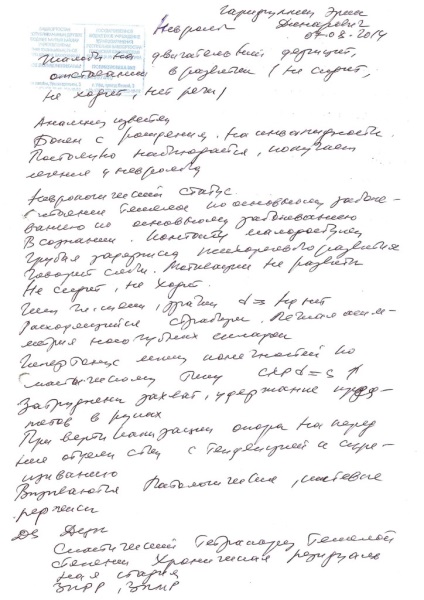 Невролог
07.08.2014
Жалобы на двигательный дефицит,
отставание в развитии (не сидит,
не ходит, нет речи)
Анамнез известен
Болен с рождения. На инвалидности.
Постоянно наблюдается, получает
лечение у невролога
Неврологический статус.
Состояние тяжелое по основному заболе-
ванию по основному заболеванию
В сознании. Контакту малодоступен
Грубая задержка психоречевого развития
Говорит слоги. Мотивации не развиты
Не сидит, не ходит.
зрачки d=s Ny нет
Расходящийся страбизм. Легкая асим-
метрия носогубных складок
Гипертонус мышц конечностей по
спастическому типу СХР d=s ↑
Затруднен захват, удержание пред-
метов в руках
При вертикализации опора на перед
ние отделы стоп с тенденцией к скре-
щиванию
Вызываются патологические, кистевые
рефлексы
DS ДЦП
Спастический тетрапарез тяжелой
степени Хроническая резидуаль
ная стадия
ЗПРР, ЗПМР